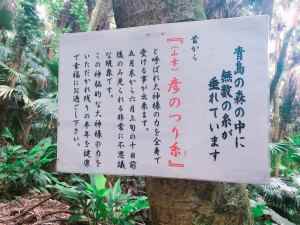 青島の森の中に
無数の糸が
垂れています
昔から
『(山幸)彦のつり糸』
と呼ばれ大神様の力を全身で
受ける事が出来ます。
五月末から六月上旬の十日前
後のみ見られる非常に不思議
な現象です。
この神秘的な大神様の力を
いただかれ残りの半年を健康
で幸福にお過ごし下さい。